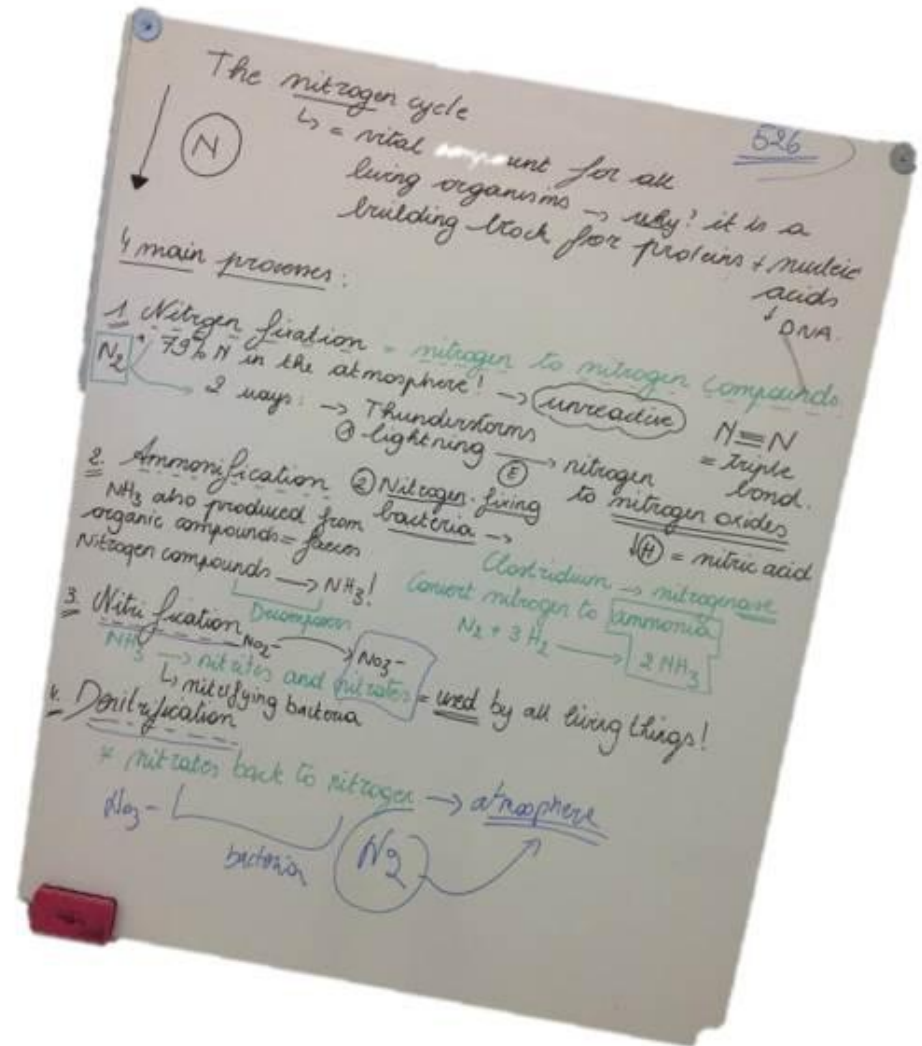 The nitrogen cycle
526
N
↳ = vital unt for all
living organisms → why? it is a
building block for proteins + nucleic
acids
↓ DNA.
4 main processes:
1. Nitrgen fixation = nitrogen to nitrogen compounds.
N2 * 79% N in the atmosphere! → unreactive
N≡N
= triple
bond.
2 ways: → Thunderstorms
① lightning —Ⓔ→ nitrogen
to nitrogen oxides
↓Ⓗ = nitric acid
② Nitrogen-fixing
bacteria →
Clostridium → nitrogenase
Convert nitrogen to ammonia
N2 + 3H2 → 2NH3
2. Ammonification
NH3 also produced from
organic compounds = faeces
Nitrogen compounds → NH3!
3. Nitri fication
NO2- → NO3-
NH3 → nitrites and nitrates = used by all living things!
↳ nitrifying bacteria
4. Denitrification
* nitrates back to nitrogen → atmosphere
NO3-
bacteria
N2